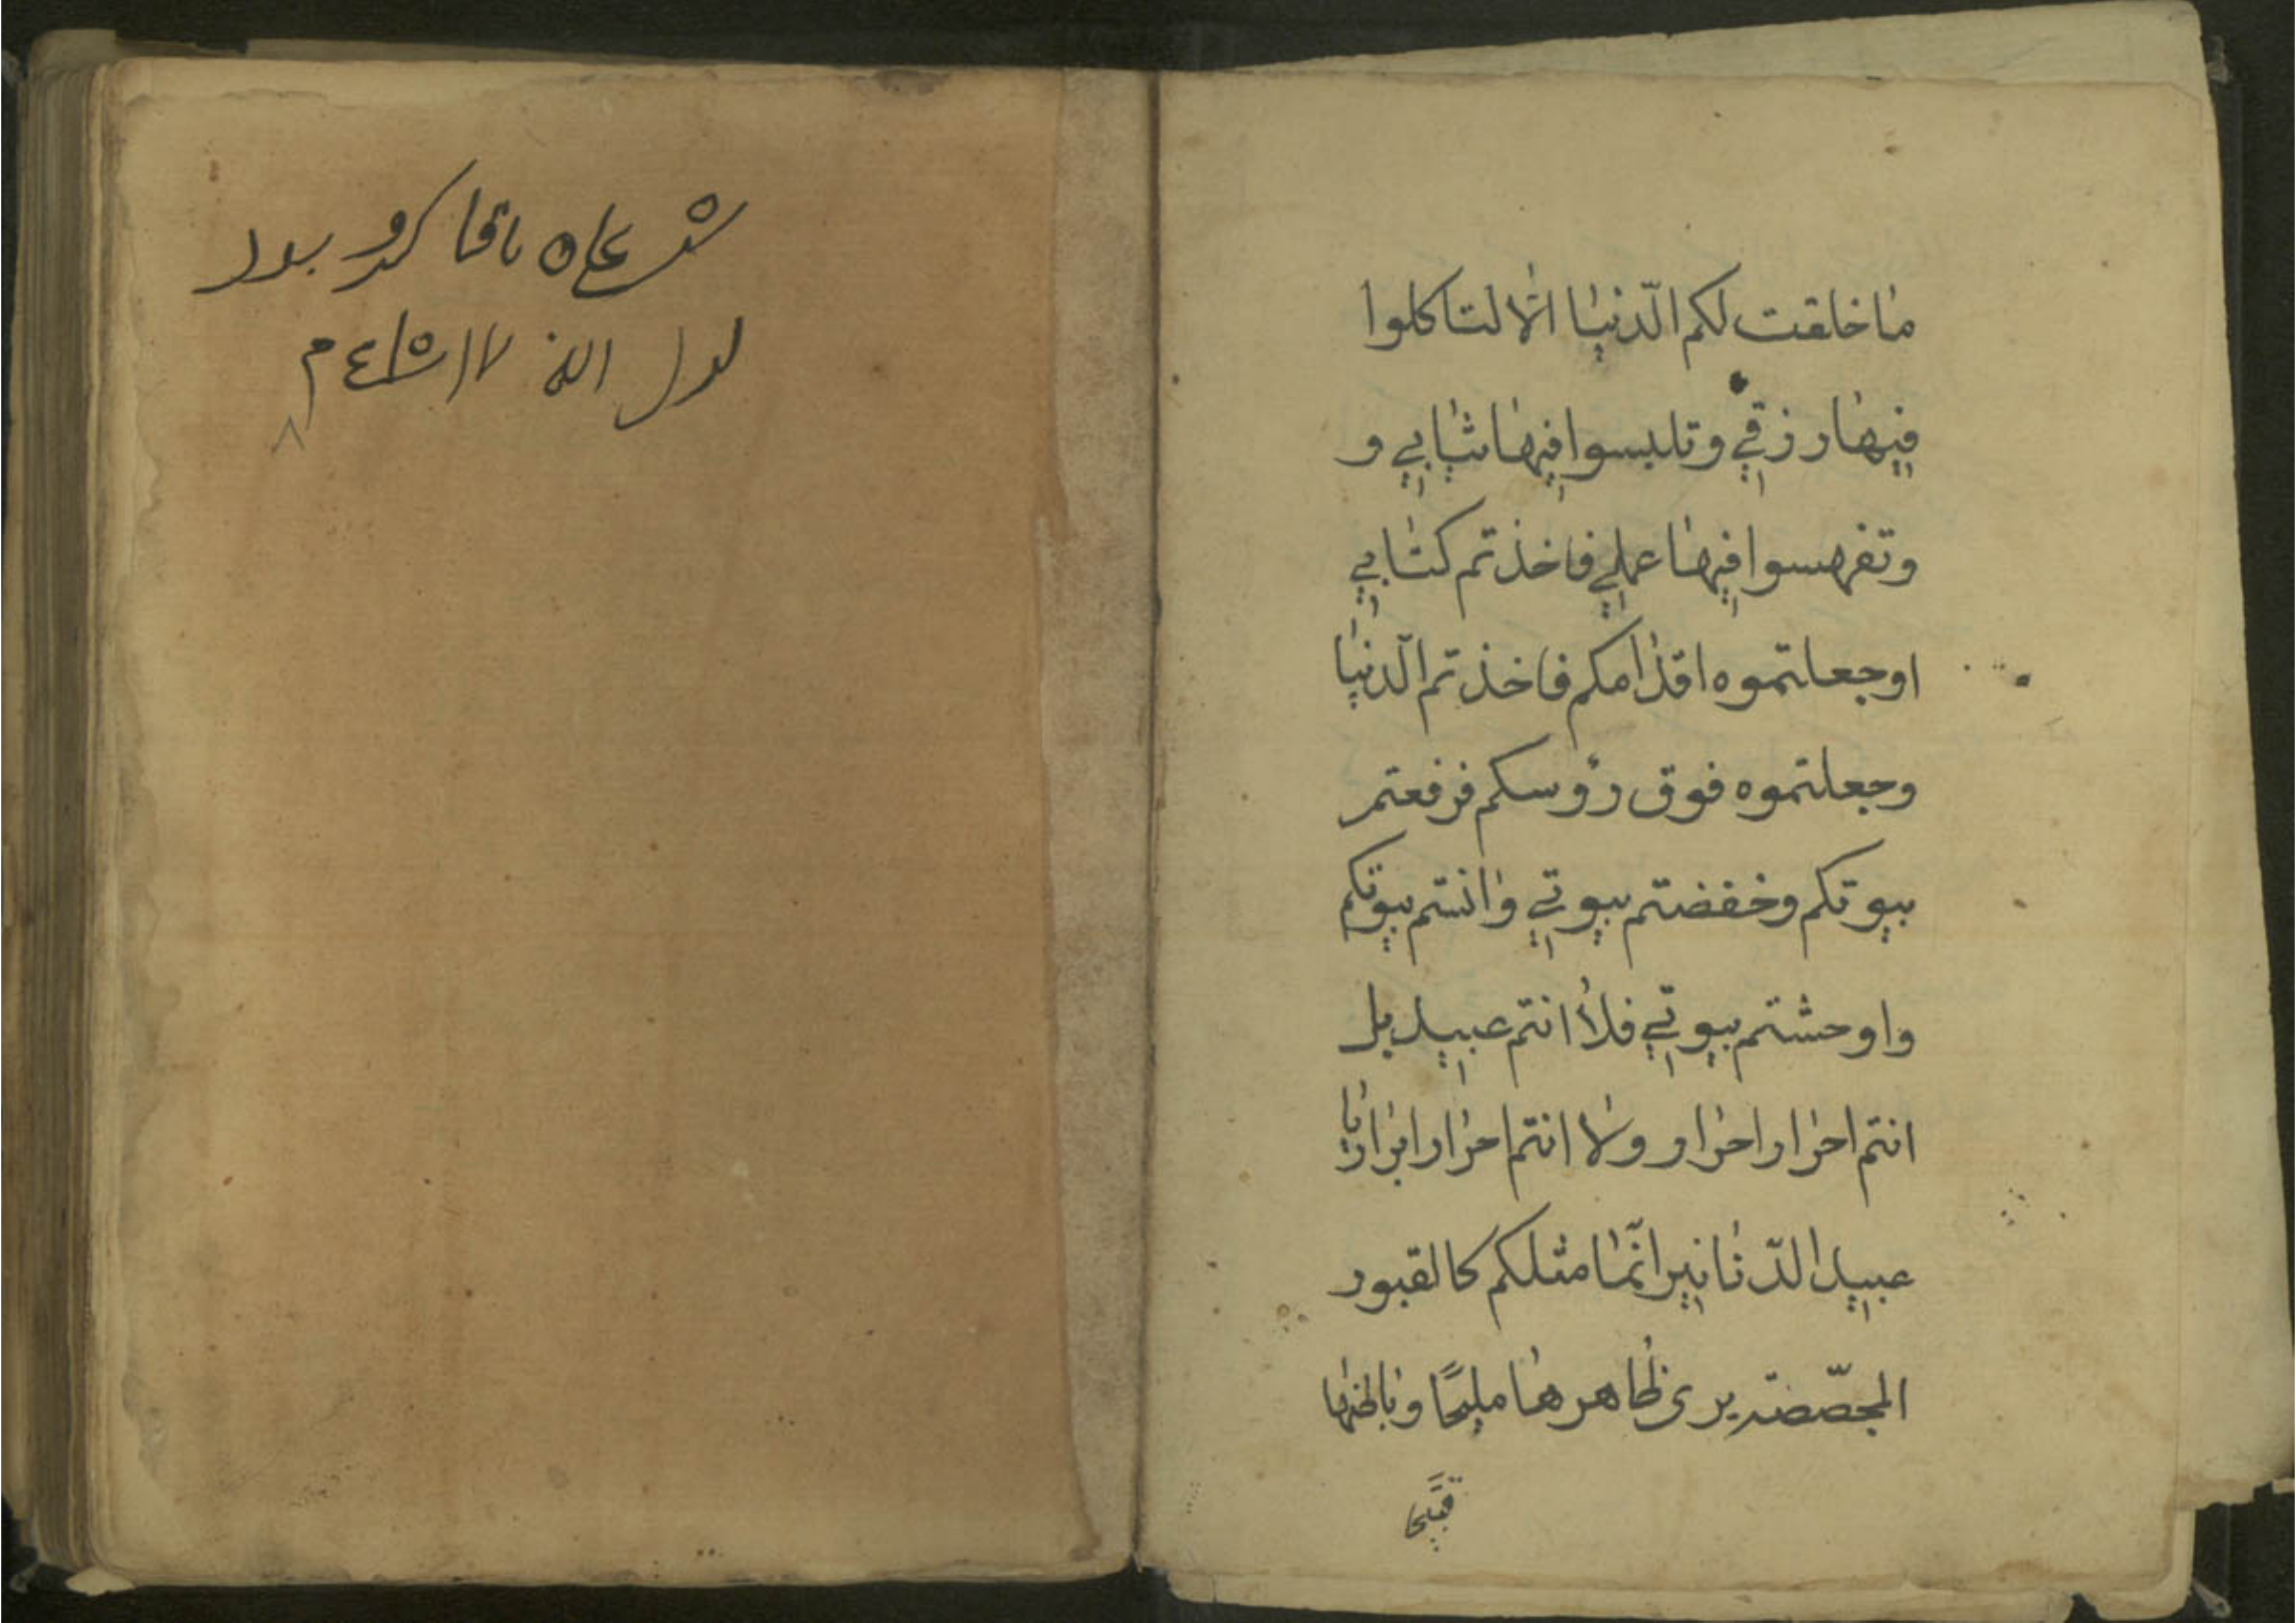 ما خلقت لكم الدّنيا الّا لتاكلوا
فيها رزقي وتلبسوا فيها ثيابي و
وتفهسوا فيها عملي فاخذتم كتابي
اوجعلتموه اقدامكم فاخذتم الدّنيا
وجعلتموه فوق رؤسكم فرفعتم
بيوتكم وخفضتم بيوتي وانستم بيوتكم
واوحشتم بيوتي فلا انتم عبيد بل
انتم احرار احرار ولا انتم احرار ابرار يا
عبيد الدّنانير انّما مثلكم كالقبور
المجصّصة يرى ظاهرها مليحًا وباطنها
قبيحًا